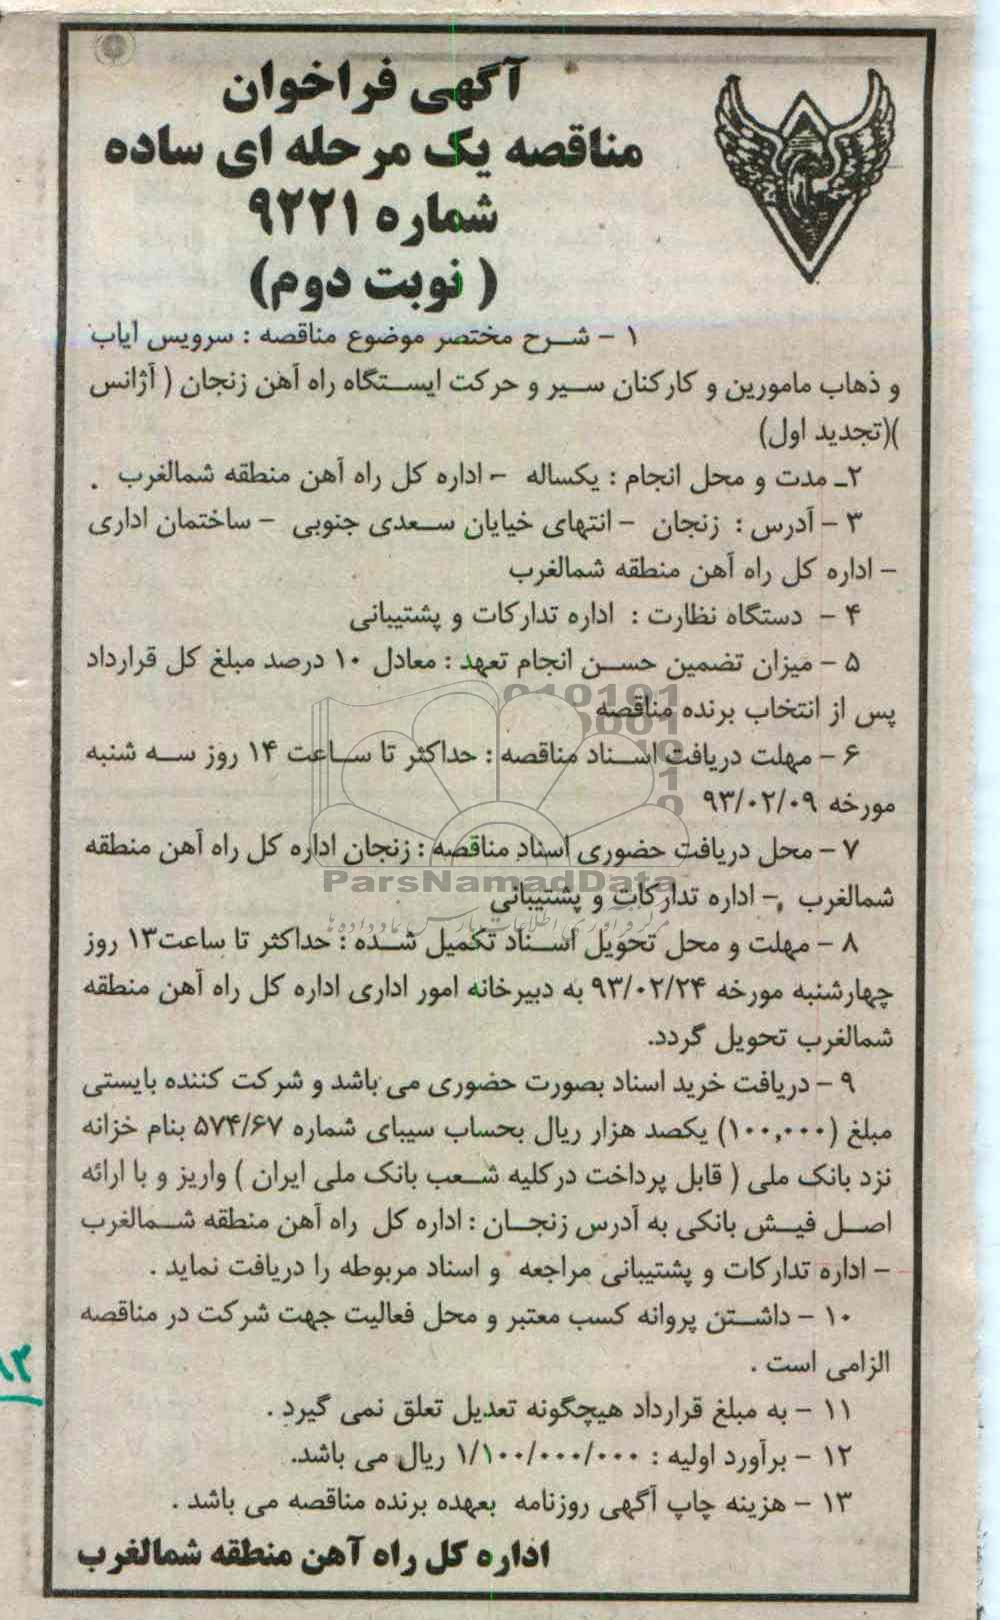 آگهی فراخوان
مناقصه یک مرحله ای ساده
شماره ۹۲۲۱
( نوبت دوم)
۱ - شرح مختصر موضوع مناقصه : سرویس ایاب
و ذهاب مامورین و کارکنان سیر و حرکت ایستگاه راه آهن زنجان ( آژانس
)(تجدید اول)
۲ـ مدت و محل انجام : یکساله - اداره کل راه آهن منطقه شمالغرب .
۳ - آدرس : زنجان - انتهای خیایان سعدی جنوبی - ساختمان اداری
- اداره کل راه آهن منطقه شمالغرب
۴ - دستگاه نظارت : اداره تدارکات و پشتیبانی
۵ - میزان تضمین حسن انجام تعهد : معادل ۱۰ درصد مبلغ کل قرارداد
پس از انتخاب برنده مناقصه
۶ - مهلت دریافت اسناد مناقصه : حداکثر تا ساعت ۱۴ روز سه شنبه
مورخه ۹۳/۰۲/۰۹
۷ - محل دریافت حضوری اسناد مناقصه : زنجان اداره کل راه آهن منطقه
ParsNamadData
شمالغرب - اداره تدارکات و پشتیبانی
۸ - مهلت و محل تحویل اسناد تکمیل شده : حداکثر تا ساعت۱۳ روز
چهارشنبه مورخه ۹۳/۰۲/۲۴ به دبیرخانه امور اداری اداره کل راه آهن منطقه
شمالغرب تحویل گردد.
۹ - دریافت خرید اسناد بصورت حضوری می باشد و شرکت کننده بایستی
مبلغ (۱۰۰,۰۰۰) یکصد هزار ریال بحساب سیبای شماره ۵۷۴/۶۷ بنام خزانه
نزد بانک ملی ( قابل پرداخت درکلیه شعب بانک ملی ایران ) واریز و با ارائه
اصل فیش بانکی به آدرس زنجان : اداره کل راه آهن منطقه شمالغرب
- اداره تدارکات و پشتیبانی مراجعه و اسناد مربوطه را دریافت نماید .
۱۰ - داشتن پروانه کسب معتبر و محل فعالیت جهت شرکت در مناقصه
الزامی است .
۱۱ - به مبلغ قرارداد هیچگونه تعدیل تعلق نمی گیرد .
۱۲ - برآورد اولیه : ۱/۱۰۰/۰۰۰/۰۰۰ ریال می باشد.
۱۳ - هزینه چاپ آگهی روزنامه بعهده برنده مناقصه می باشد .
اداره کل راه آهن منطقه شمالغرب